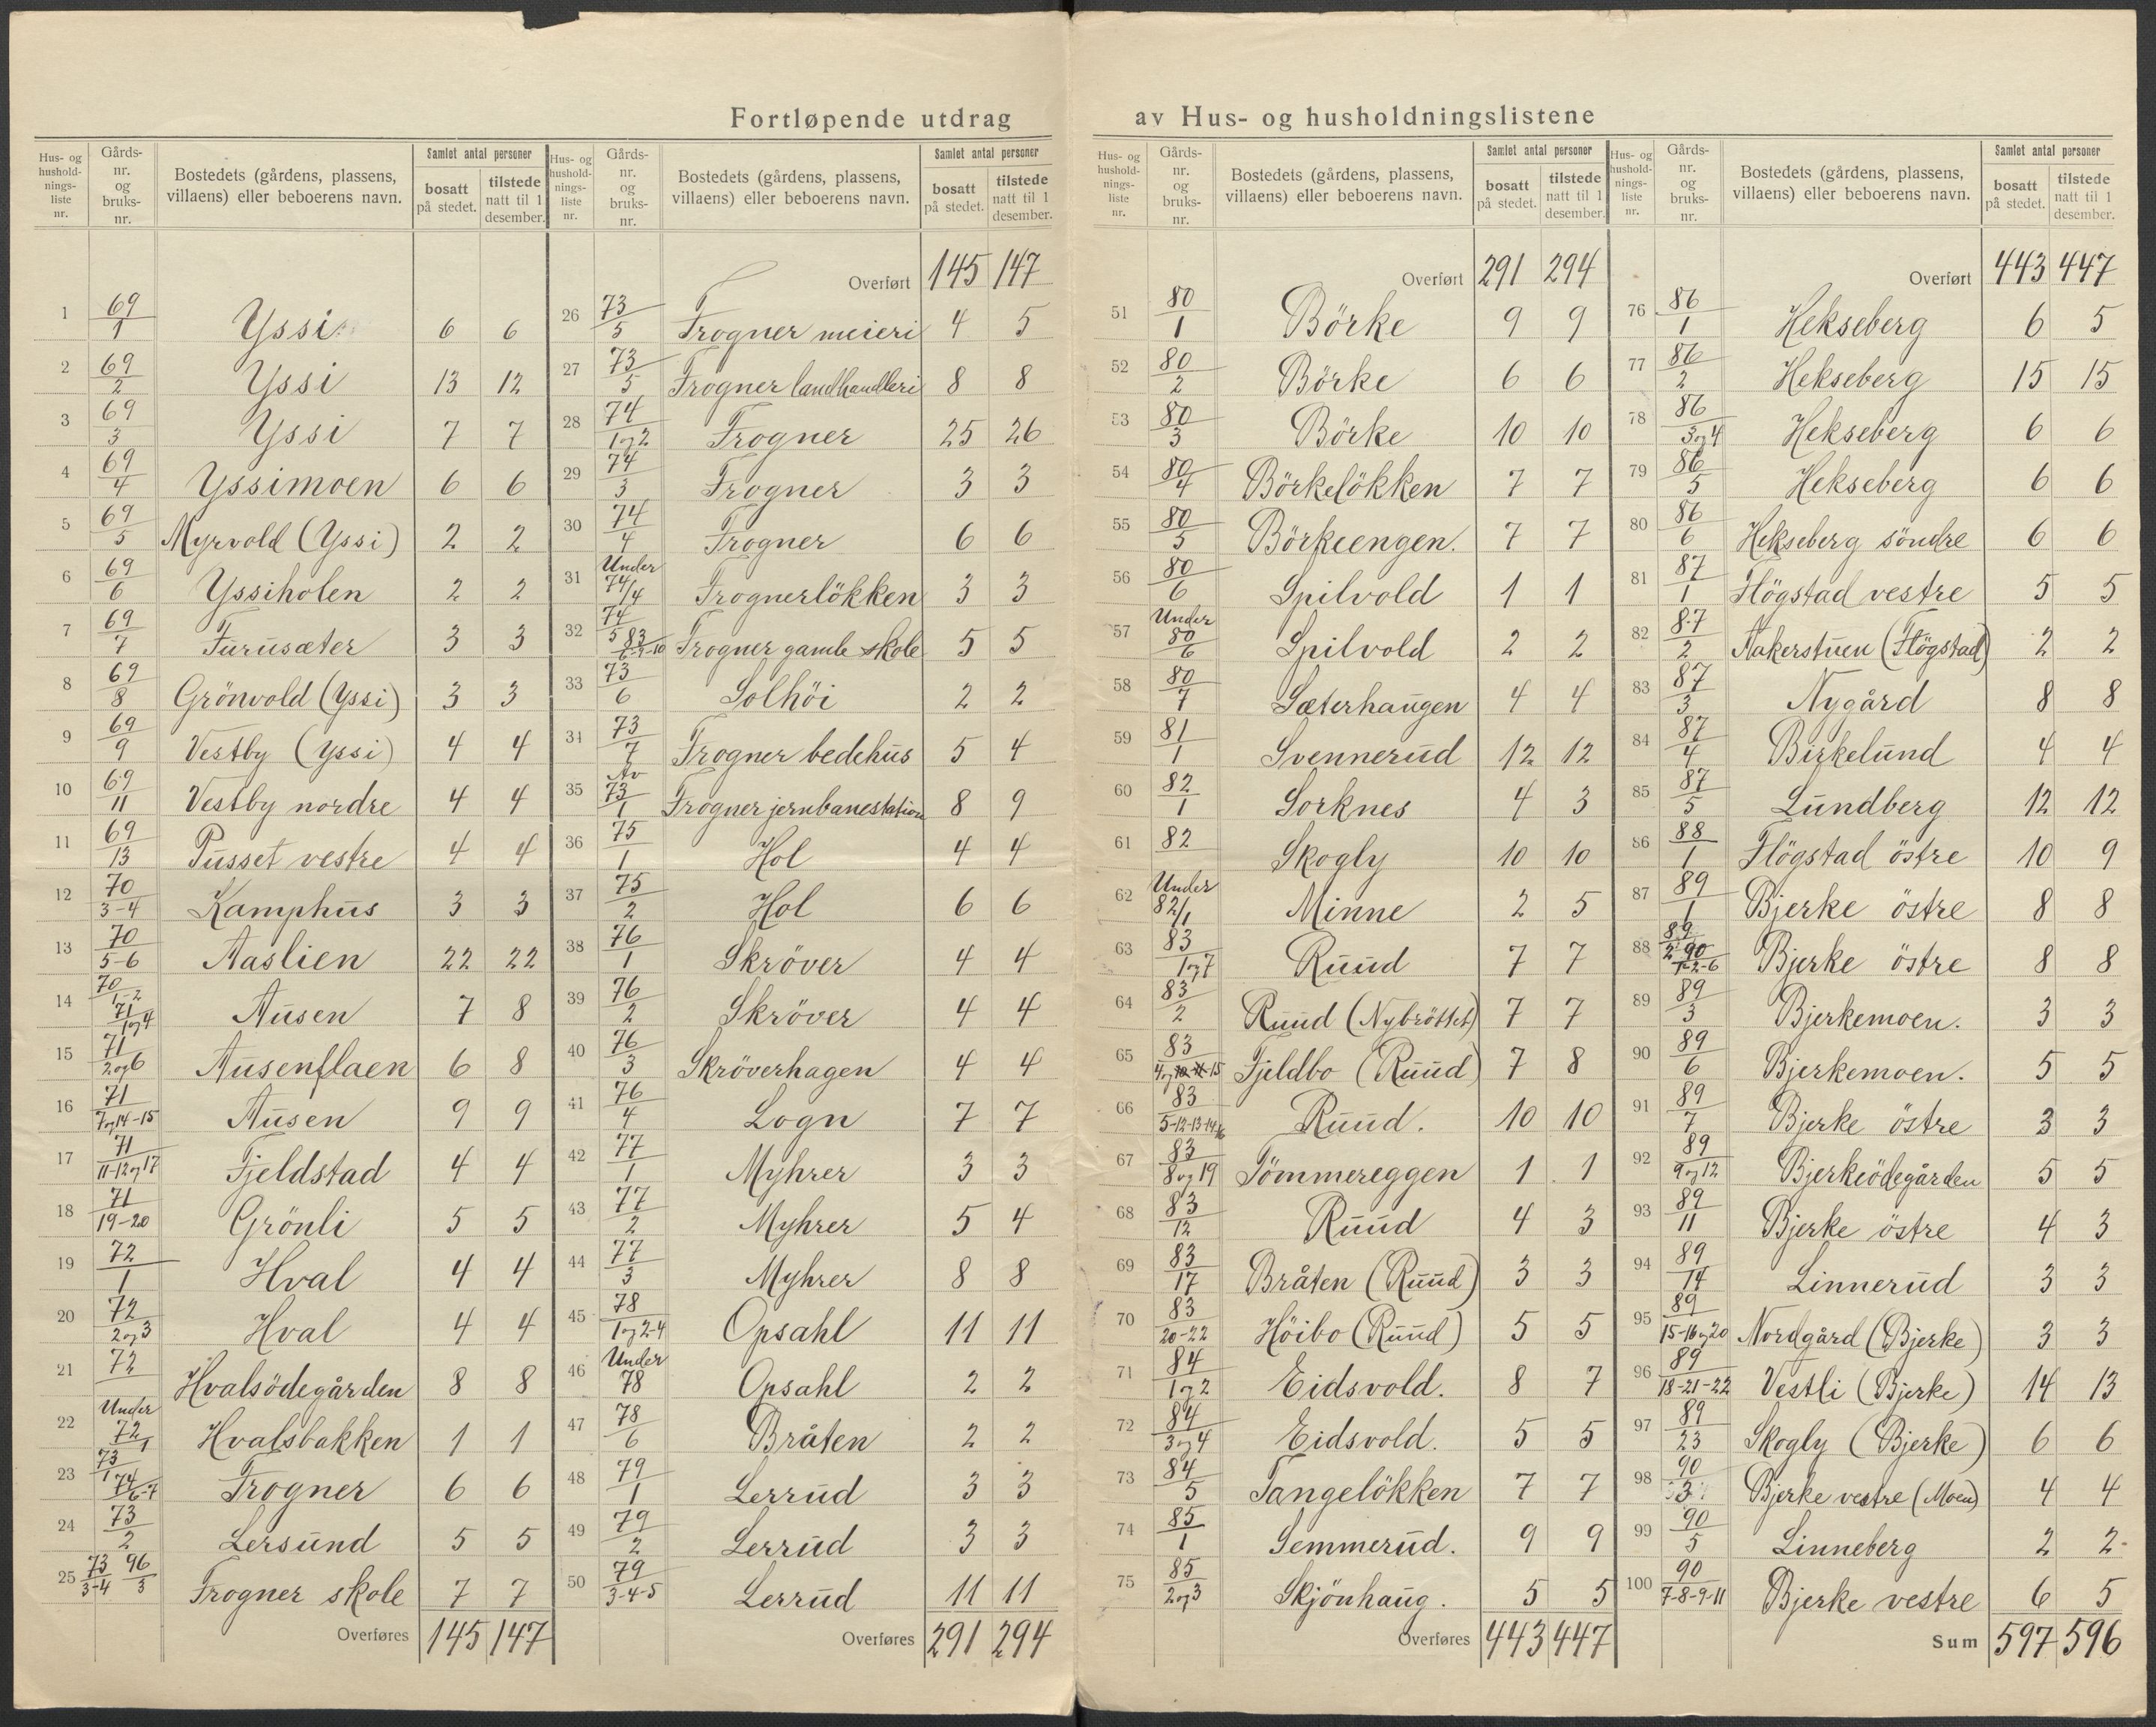 Fortløpende utdrag av Hus- og husholdningslistene
Hus- og husholdnings- liste nr. | Gårds- nr. og bruks- nr. | Bostedets (gårdens, plassens, villaens) eller beboerens navn. | Samlet antal personer | bosatt på stedet. | tilstede natt til 1 desember.
1 69/1 Yssi 6 6
2 69/2 Yssi 13 12
3 69/3 Yssi 7 7
4 69/4 Yssimoen 6 6
5 69/5 Myrvold (Yssi) 2 2
6 69/6 Yssiholen 2 2
7 69/7 Furusæter 3 3
8 69/8 Grönvold (Yssi) 3 3
9 69/9 Vestby (Yssi) 4 4
10 69/11 Vestby nordre 4 4
11 69/13 Pusset vestre 4 4
12 70/3-4 Kamphus 3 3
13 70/5-6 Aaslien 22 22
14 70/1-2 71/1og4 Ausen 7 8
15 71/2og6 Ausenflaen 6 8
16 71/7og14-15 Ausen 9 9
17 71/11-12og17 Fjeldstad 4 4
18 71/19-20 Grönli 5 5
19 72/1 Hval 4 4
20 72/2og3 Hval 4 4
21 72 Hvalsödegården 8 8
22 Under 72/1 Hvalsbakken 1 1
23 73/1 74/6-7 Frogner 6 6
24 73/2 Lersund 5 5
25 73/3-4 96/3 Frogner skole 7 7
Overføres 145 147
Hus- og husholdnings- liste nr. | Gårds- nr. og bruks- nr. | Bostedets (gårdens, plassens, villaens) eller beboerens navn. | Samlet antal personer | bosatt på stedet. | tilstede natt til 1 desember.
Overført 145 147
26 73/5 Frogner meieri 4 5
27 73/5 Frogner landhandleri 8 8
28 74/1og2 Frogner 25 26
29 74/3 Frogner 3 3
30 74/4 Frogner 6 6
31 Under 74/4 Frognerlökken 3 3
32 74/5 83/6-9-10 Frogner gamle skole 5 5
33 73/6 Solhöi 2 2
34 73/7 Frogner bedehus 5 4
35 Av 73/1 Frogner jernbanestation 8 9
36 75/1 Hol 4 4
37 75/2 Hol 6 6
38 76/1 Skröver 4 4
39 76/2 Skröver 4 4
40 76/3 Skröverhagen 4 4
41 76/4 Logn 7 7
42 77/1 Myhrer 3 3
43 77/2 Myhrer 5 4
44 77/3 Myhrer 8 8
45 78/1og2-4 Opsahl 11 11
46 Under 78 Opsahl 2 2
47 78/6 Bråten 2 2
48 79/1 Lerrud 3 3
49 79/2 Lerrud 3 3
50 79/3-4-5 Lerrud 11 11
Overføres 291 294
Hus- og husholdnings- liste nr. | Gårds- nr. og bruks- nr. | Bostedets (gårdens, plassens, villaens) eller beboerens navn. | Samlet antal personer | bosatt på stedet. | tilstede natt til 1 desember.
Overført 291 294
51 80/1 Börke 9 9
52 80/2 Börke 6 6
53 80/3 Börke 10 10
54 80/4 Börkelökken 7 7
55 80/5 Börkeengen. 7 7
56 80/6 Spilvold 1 1
57 Under 80/6 Spilvold 2 2
58 80/7 Sæterhaugen 4 4
59 81/1 Svennerud 12 12
60 82/1 Sorknes 4 3
61 82 Skogly 10 10
62 Under 82/1 Minne 2 5
63 83/1og7 Ruud 7 7
64 83/2 Ruud (Nybröttet) 7 7
65 83/4og 15 Fjeldbo (Ruud) 7 8
66 83/5-12-13-14 Ruud. 10 10
67 83/8og19 Tömmereggen 1 1
68 83/12 Ruud 4 3
69 83/17 Bråten (Ruud) 3 3
70 83/20-22 Höibo (Ruud) 5 5
71 84/1og2 Eidsvold. 8 7
72 84/3og4 Eidsvold. 5 5
73 84/5 Tangelökken 7 7
74 85/1 Semmerud. 9 9
75 85/2og3 Skjönhaug. 5 5
Overføres 443 447
Hus- og husholdnings- liste nr. | Gårds- nr. og bruks- nr. | Bostedets (gårdens, plassens, villaens) eller beboerens navn. | Samlet antal personer | bosatt på stedet. | tilstede natt til 1 desember.
Overført 443 447
76 86/1 Hekseberg 6 5
77 86/2 Hekseberg 15 15
78 86/3og4 Hekseberg 6 6
79 86/5 Hekseberg 6 6
80 86/6 Hekseberg söndre 6 6
81 87/1 Högstad vestre 5 5
82 87/2 Aakerstuen (Flögstad) 2 2
83 87/3 Nygård 8 8
84 87/4 Birkelund 4 4
85 87/5 Lundberg 12 12
86 88/1 Flögstad östre 10 9
87 89/1 Bjerke östre 8 8
88 89/2 90/1-2-6 Bjerke östre 8 8
89 89/3 Bjerkemoen. 3 3
90 89/6 Bjerkemoen. 5 5
91 89/7 Bjerke östre 3 3
92 89/9og12 Bjerkeödegården 5 5
93 89/11 Bjerke östre 4 3
94 89/14 Linnerud 3 3
95 89/15-16og20 Nordgård (Bjerke) 3 3
96 89/18-21-22 Vestli (Bjerke) 14 13
97 89/23 Skogly (Bjerke) 6 6
98 90/3 Bjerke vestre (Moen) 4 4
99 90/5 Linneberg 2 2
100 90/7-8-9-11 Bjerke vestre 6 5
Sum 597 596